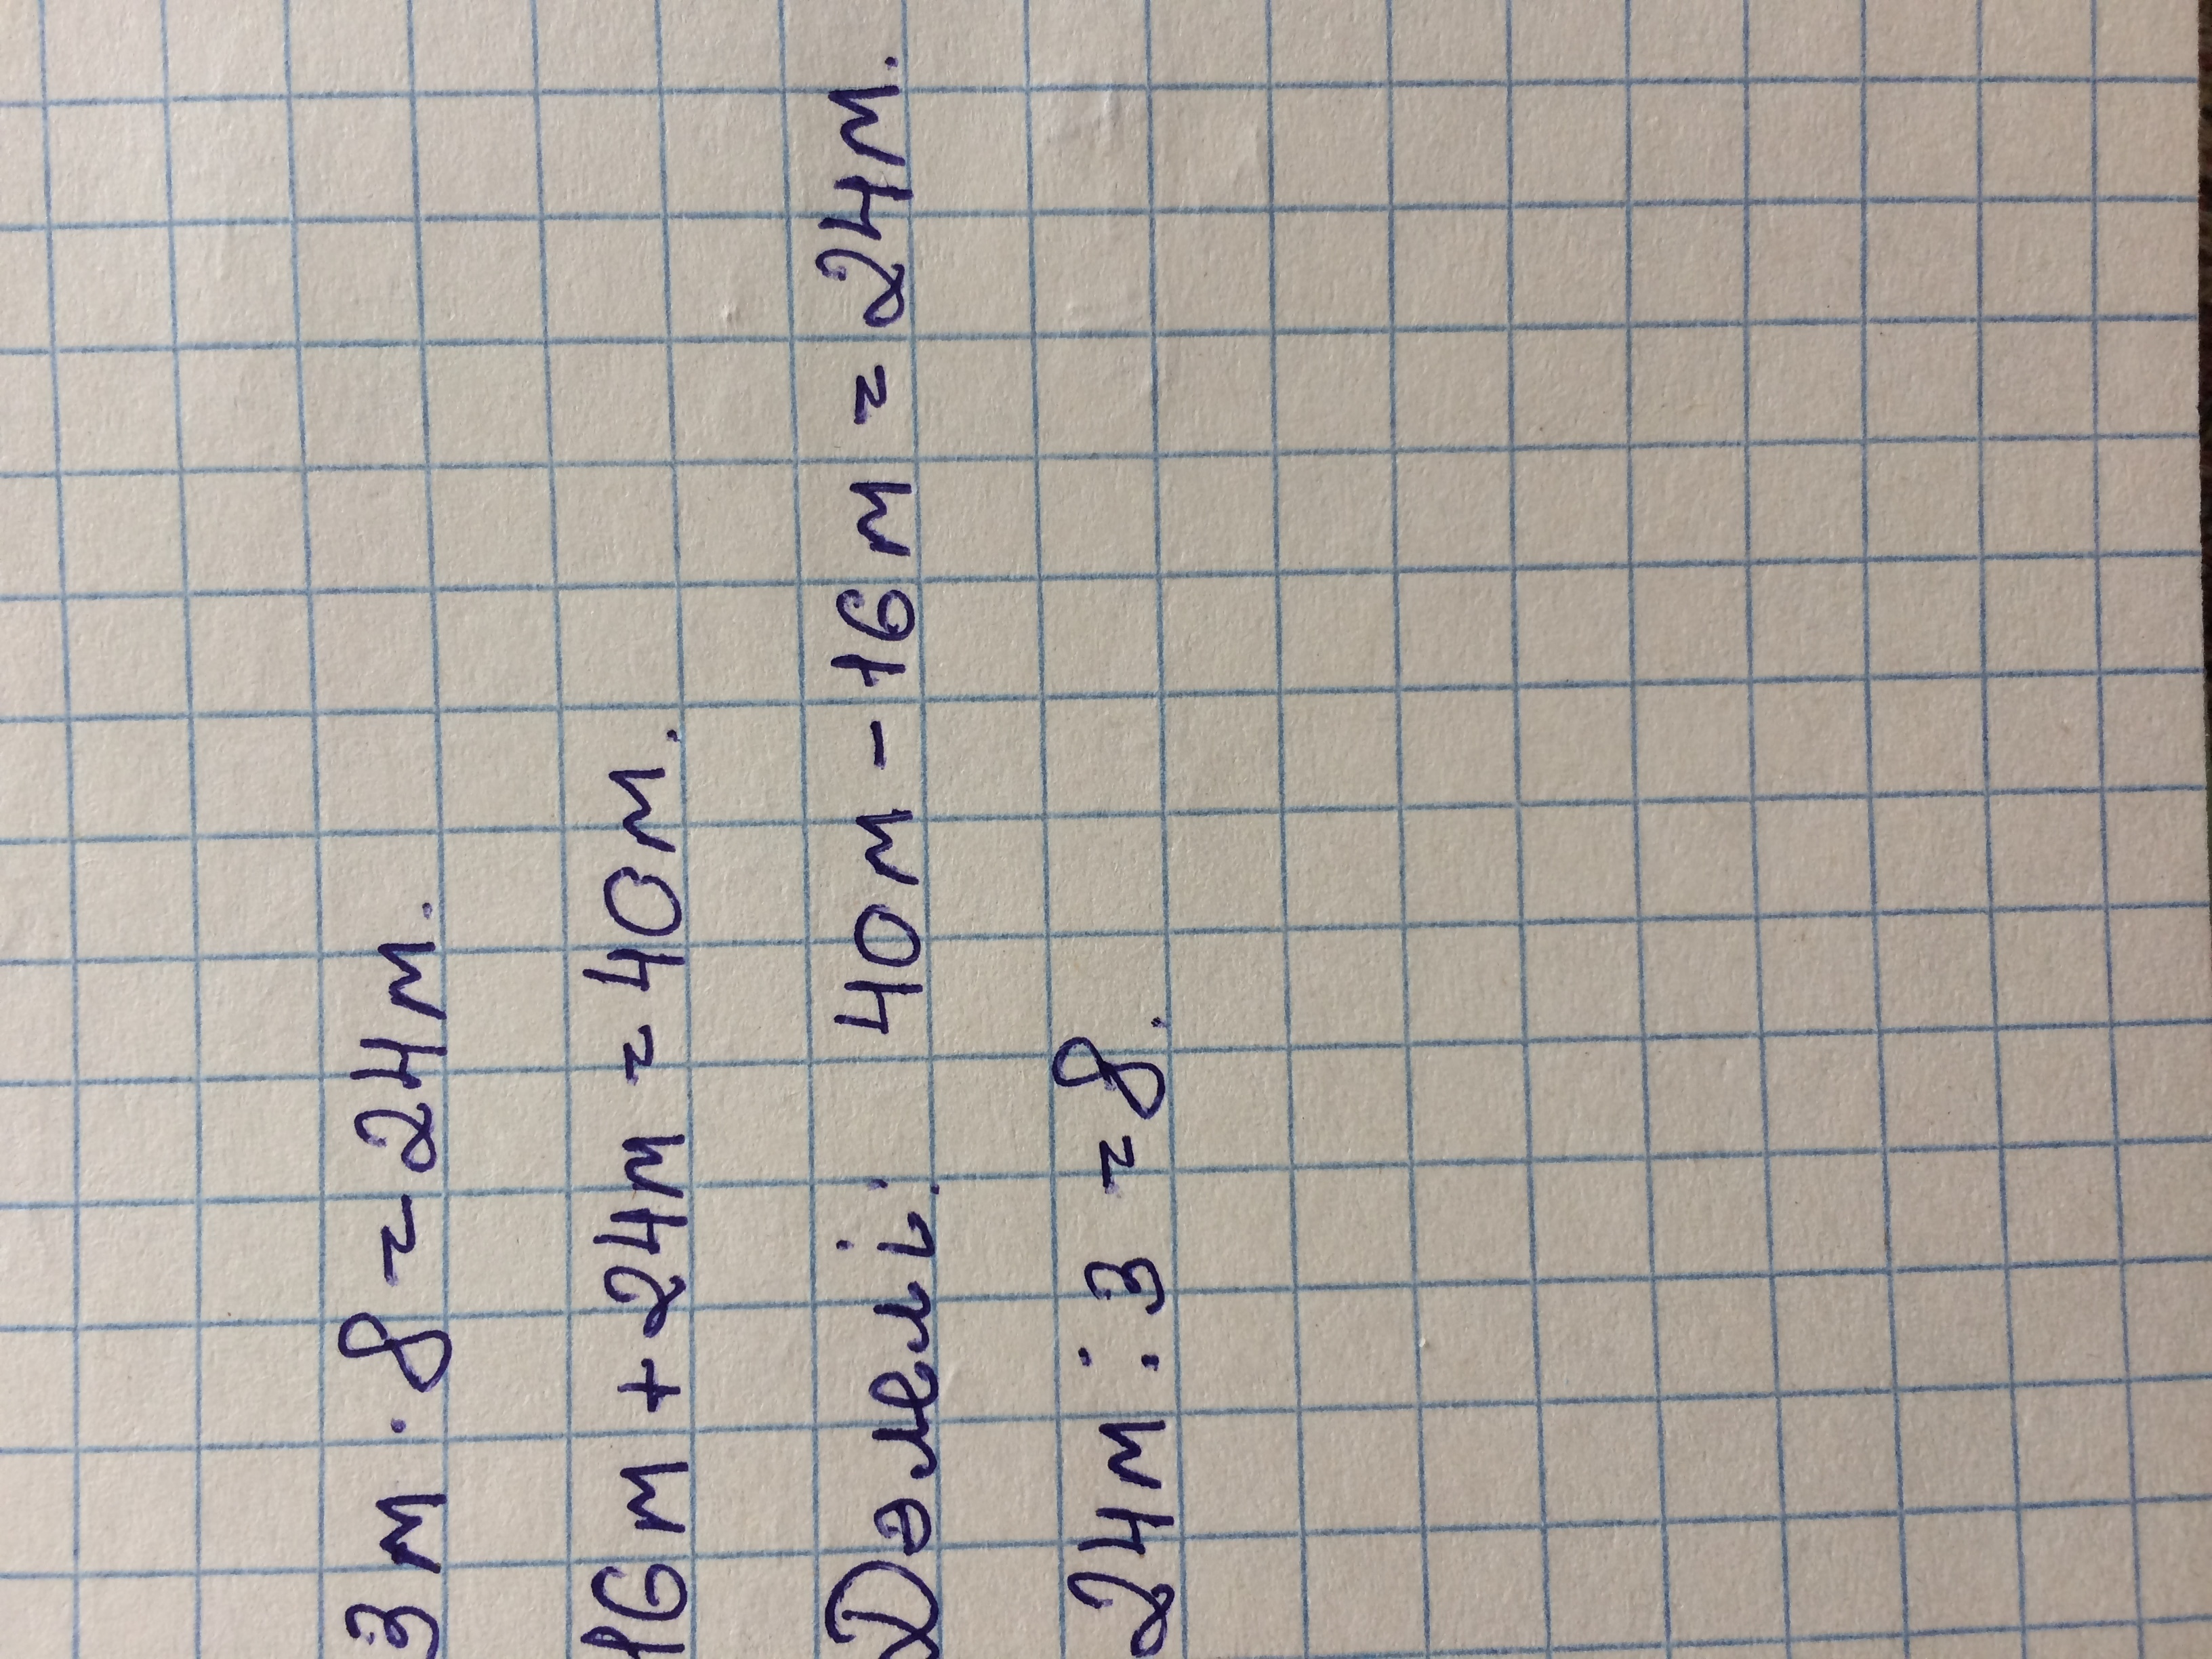 3 м · 8 = 24 м.
16 м + 24 м = 40 м.
Дәлелі: 40 м - 16 м = 24 м.
24 м : 3 = 8.